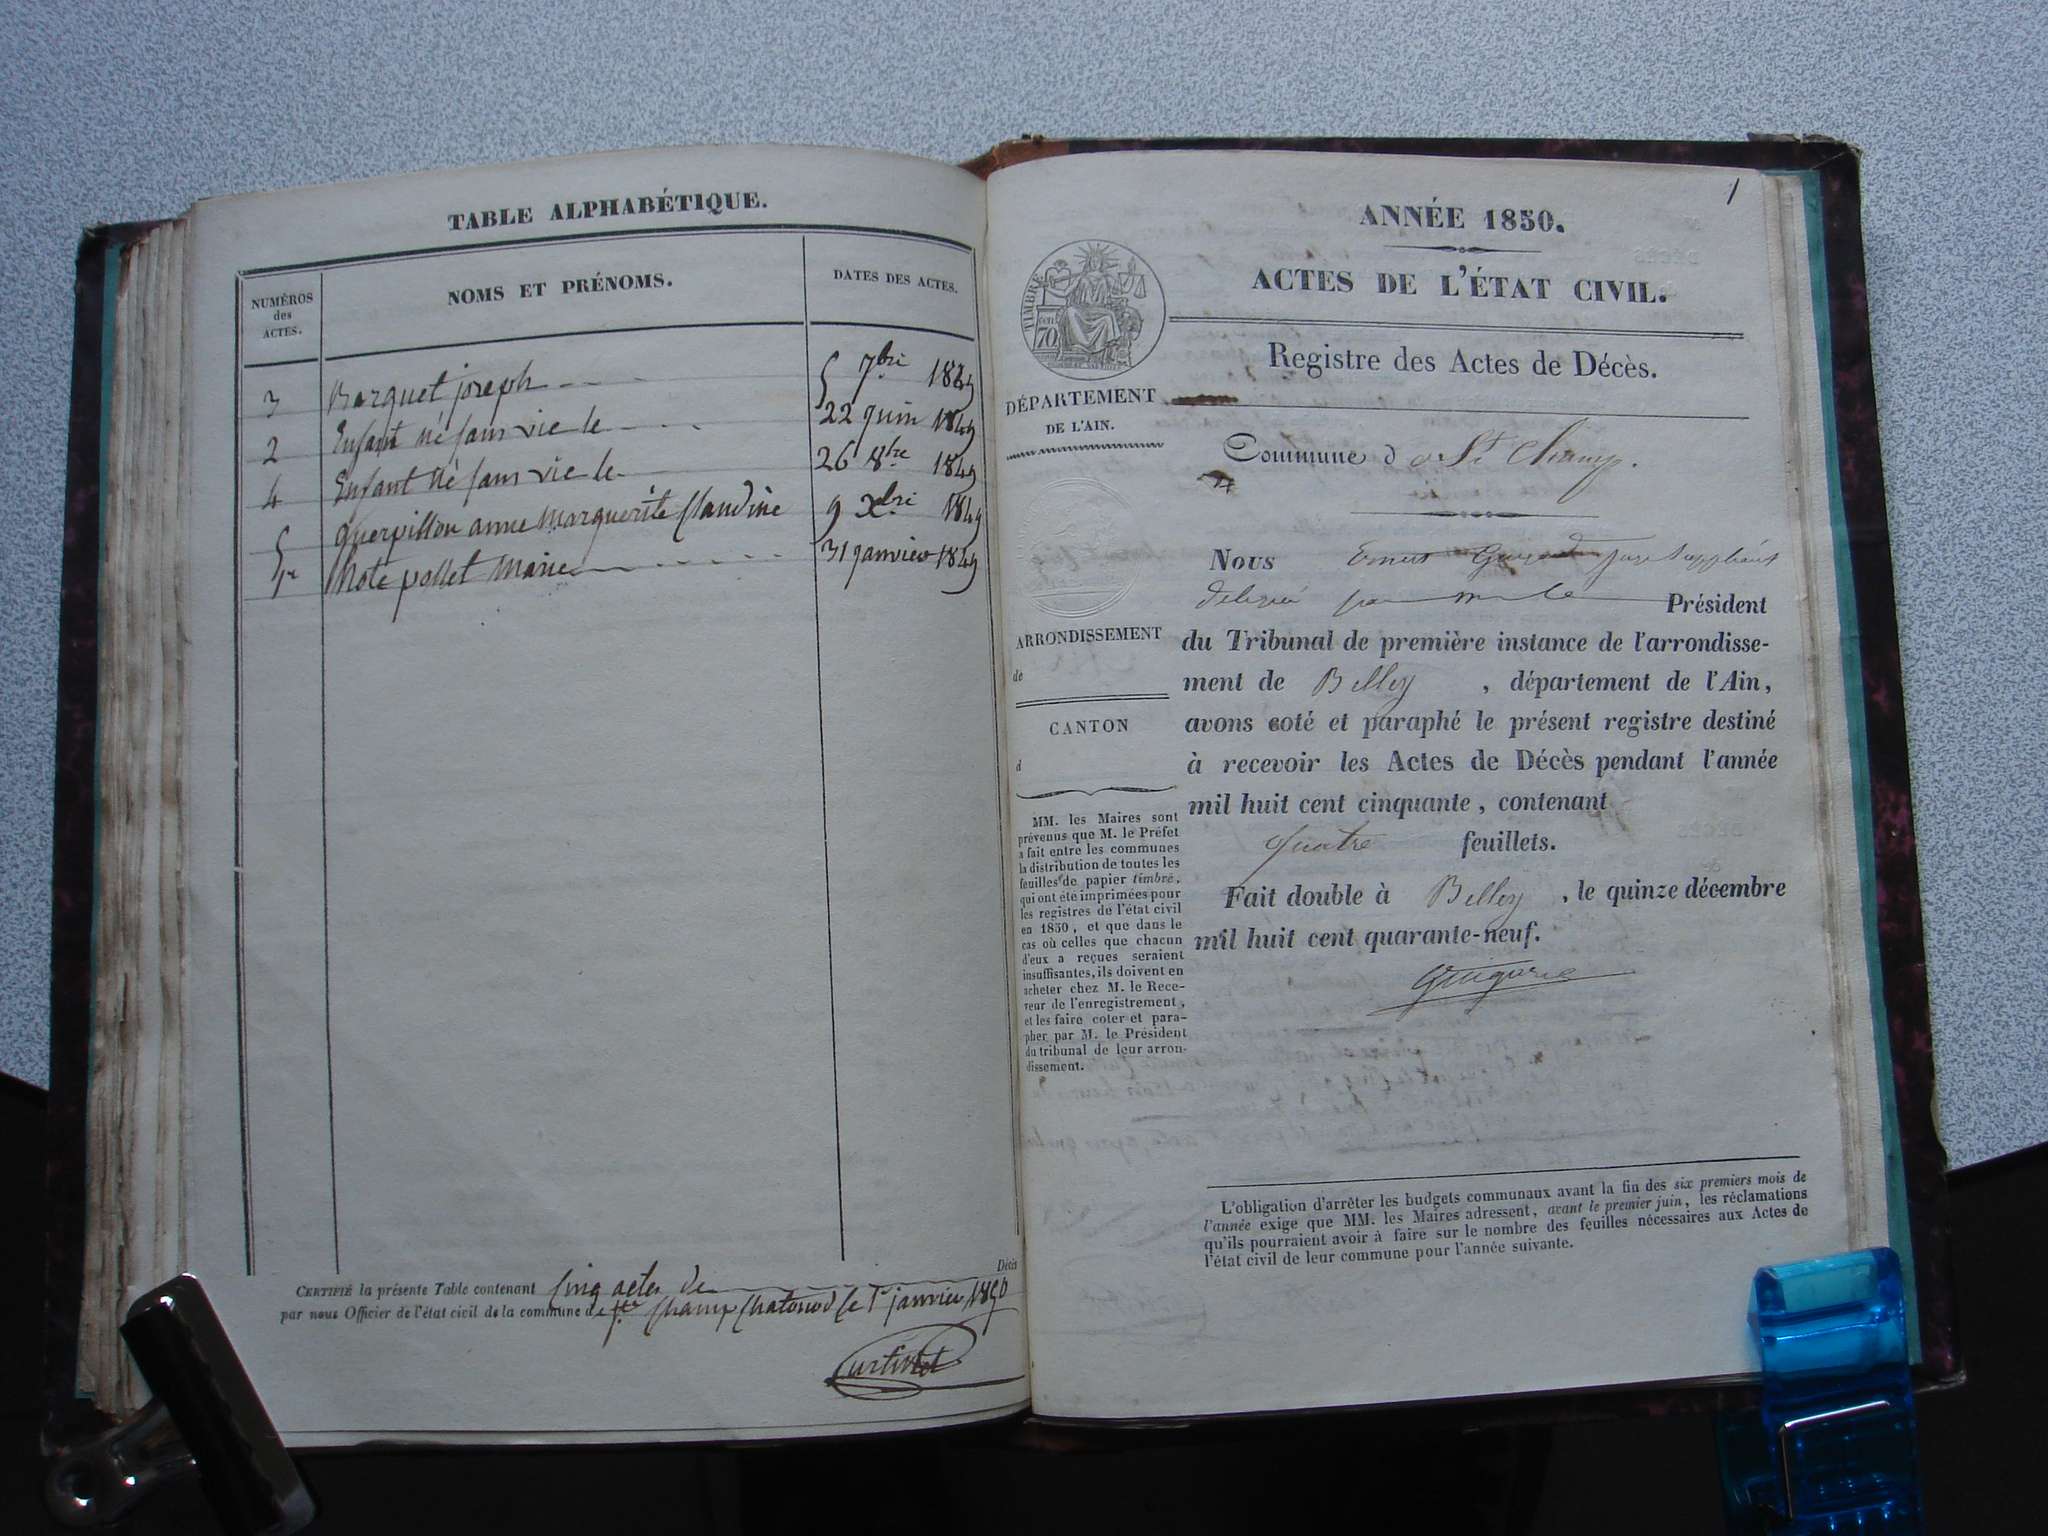 TABLE ALPHABÉTIQUE.
NUMÉROS des ACTES.
NOMS ET PRÉNOMS.
DATES DES ACTES.
3 Barquet joseph 5 7bre 1849
2 Enfant né sans vie le 22 juin 1849
4 Enfant né sans vie le 26 8bre 1849
5 querpillon anne Marguerite Claudine 9 Xbre 1849
1er Note pollet Marie 31 janvier 1849
Décès
CERTIFIÉ la présente Table contenant Cinq actes de
par nous Officier de l'état civil de la commune de Ste Champ Chatonod le 1er janvier 1850
1
ANNÉE 1850.
ACTES DE L'ÉTAT CIVIL.
TIMBRE
70
Registre des Actes de Décès.
DÉPARTEMENT
DE L'AIN.
Commune d e St Champ.
Nous juge Suppléant
délégué par m le Président
du Tribunal de première instance de l'arrondisse-
ment de Belley , département de l'Ain,
avons coté et paraphé le présent registre destiné
à recevoir les Actes de Décès pendant l'année
mil huit cent cinquante, contenant
quatre feuillets.
Fait double à Belley , le quinze décembre
mil huit cent quarante-neuf.
ARRONDISSEMENT
de
CANTON
d
MM. les Maires sont
prévenus que M. le Préfet
a fait entre les communes
la distribution de toutes les
feuilles de papier timbré,
qui ont été imprimées pour
les registres de l'état civil
en 1850, et que dans le
cas où celles que chacun
d'eux a reçues seraient
insuffisantes, ils doivent en
acheter chez M. le Rece-
veur de l'enregistrement,
et les faire coter et para-
pher par M. le Président
du tribunal de leur arron-
dissement.
L'obligation d'arrêter les budgets communaux avant la fin des six premiers mois de
l'année exige que MM. les Maires adressent, avant le premier juin, les réclamations
qu'ils pourraient avoir à faire sur le nombre des feuilles nécessaires aux Actes de
l'état civil de leur commune pour l'année suivante.